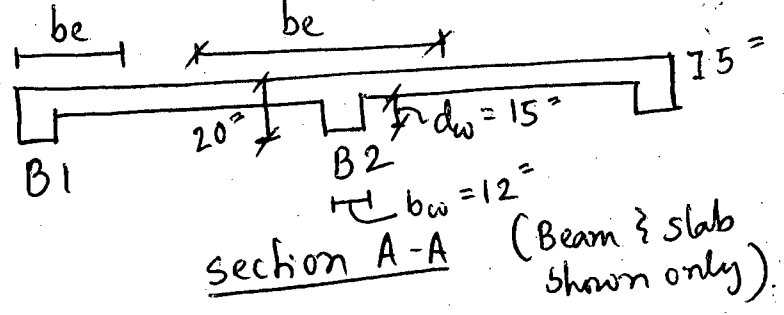 be be
5"
20" dw = 15"
B1 B2
bw = 12"
section A-A (Beam & slab
shown only).